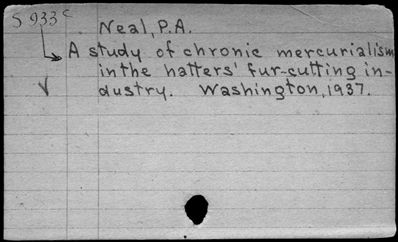 S 933 c
Neal, P.A.
A study of chronic mercurialism
in the hatters' fur-cutting in-
dustry. Washington, 1937.